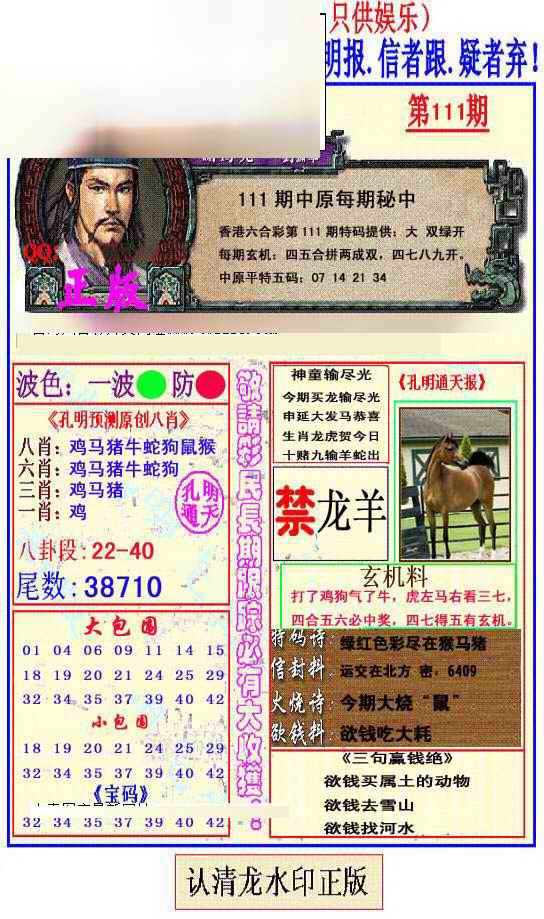 只供娱乐)
明报.信者跟.疑者弃!
第111期
111 期中原每期秘中
香港六合彩第 111 期特码提供：大 双绿开
每期玄机：四五合拼两成双，四七八九开。
中原平特五码：07 14 21 34
QQ
正版
波色：一波 防
《孔明预测原创八肖》
八肖：鸡马猪牛蛇狗鼠猴
六肖：鸡马猪牛蛇狗
三肖：鸡马猪
一肖：鸡
孔明通天
八卦段:22-40
尾数:38710
大包围
01 04 06 09 11 14 15
18 19 20 21 24 25 29
32 34 35 37 39 40 42
小包围
18 19 20 21 24 25 29
32 34 35 37 39 40 42
《宝码》
32 34 35 37 39 40 42
敬請彩民長期跟踪必有大收獲!
神童输尽光
今期买龙输尽光
申延大发马恭喜
生肖龙虎贺今日
十赌九输羊蛇出
《孔明通天报》
禁龙羊
玄机料
打了鸡狗气了牛，虎左马右看三七，
四合五六必中奖，四七得五有玄机。
特码诗：绿红色彩尽在猴马猪
信封料：运交在北方 密，6409
火烧诗：今期大烧“鼠”
欲钱料：欲钱吃大耗
《三句赢钱绝》
欲钱买属土的动物
欲钱去雪山
欲钱找河水
认清龙水印正版